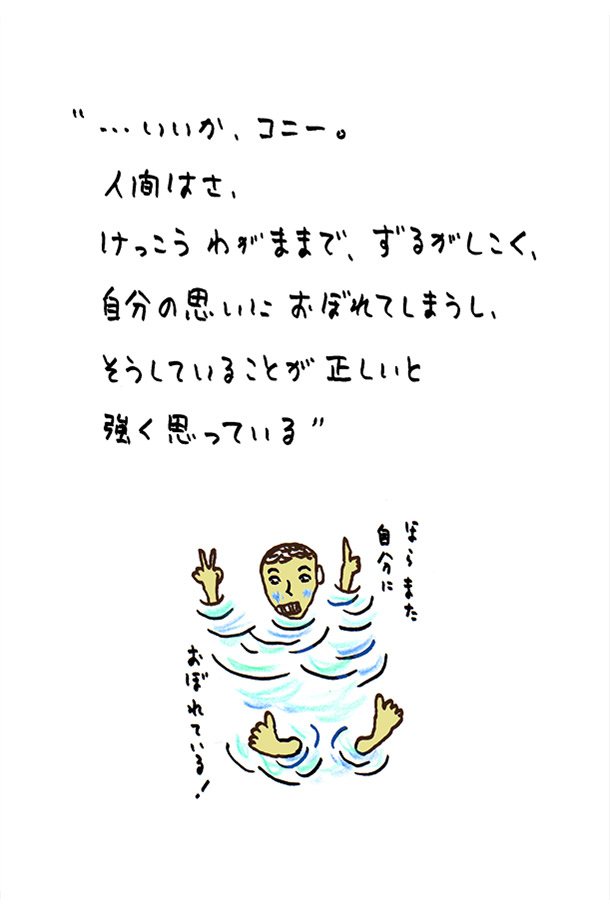 “…いいか、コニー。
人間はさ、
けっこう わがままで、ずるがしこく、
自分の思いに おぼれてしまうし、
そうしていることが 正しいと
強く思っている”
ほらまた
自分に
おぼれている!